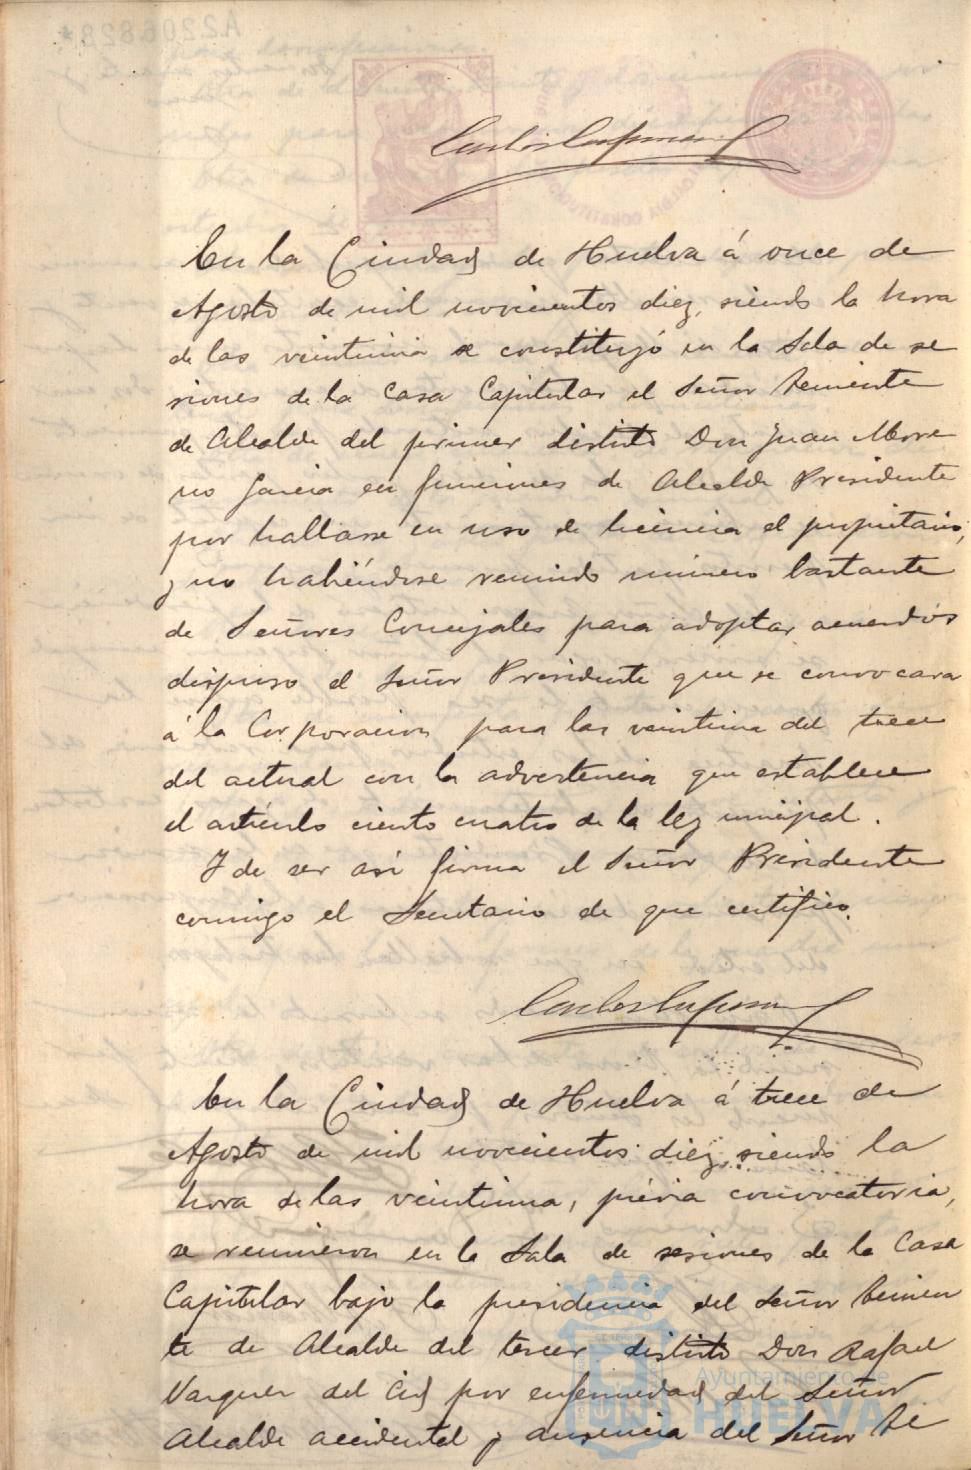 En la Ciudad de Huelva á once de
Agosto de mil novecientos diez, siendo la hora
de las veintiuna se constituyó en la Sala de se
siones de la Casa Capitular el Señor Teniente
de Alcalde del primer distrito Don Juan More
no Garcia en funciones de Alcalde Presidente
por hallarse en uso de licencia el propietario,
y no habiéndose reunido número bastante
de Señores Concejales para adoptar acuerdos
dispuso el Señor Presidente que se convocara
á la Corporacion para las veintiuna del trece
del actual con la advertencia que establece
el artículo ciento cuatro de la ley municipal.
Y de ser asi firma el Señor Presidente
conmigo el Secretario de que certifico.
En la Ciudad de Huelva á trece de
Agosto de mil novecientos diez, siendo la
hora de las veintiuna, prévia convocatoria,
se reunieron en la Sala de sesiones de la Casa
Capitular bajo la presidencia del Señor Tenien
te de Alcalde del tercer distrito Don Rafael
Vazquez del Cid por enfermedad del Señor
Alcalde accidental y ausencia del Señor Te
Ayuntamiento de
HUELVA